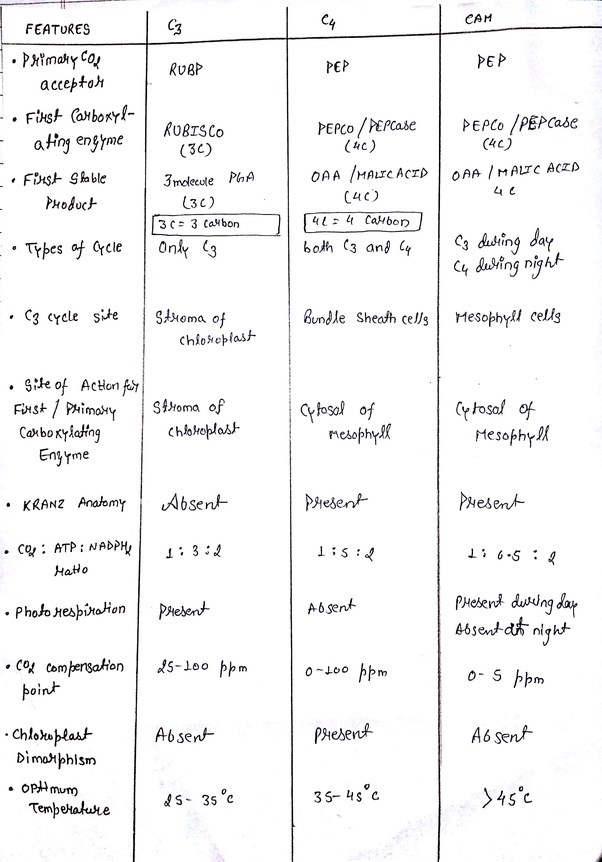 FEATURES C3 C4 CAM
• Primary CO2 acceptor RUBP PEP PEP
• First Carboxyl-ating enzyme RUBISCO (3C) PEPCO/PEPCase (4C) PEPCO/PEPCase (4C)
• First Stable Product 3 molecule PGA (3C) OAA/MALIC ACID (4C) OAA/MALIC ACID 4C
3C = 3 Carbon 4C = 4 Carbon
• Types of Cycle Only C3 both C3 and C4 C3 during day C4 during night
• C3 cycle site Stroma of chloroplast Bundle Sheath cells Mesophyll cells
• Site of Action for First / Primary Carboxylating Enzyme Stroma of chloroplast Cytosal of Mesophyll Cytosal of Mesophyll
• KRANZ Anatomy Absent Present Present
• CO2 : ATP : NADPH2 ratio 1 : 3 : 2 1 : 5 : 2 1 : 6.5 : 2
• Photorespiration Present Absent Present during day Absent at night
• CO2 compensation point 25-100 ppm 0-100 ppm 0-5 ppm
• Chloroplast Dimorphism Absent Present Absent
• Optimum Temperature 25-35°C 35-45°C >45°C